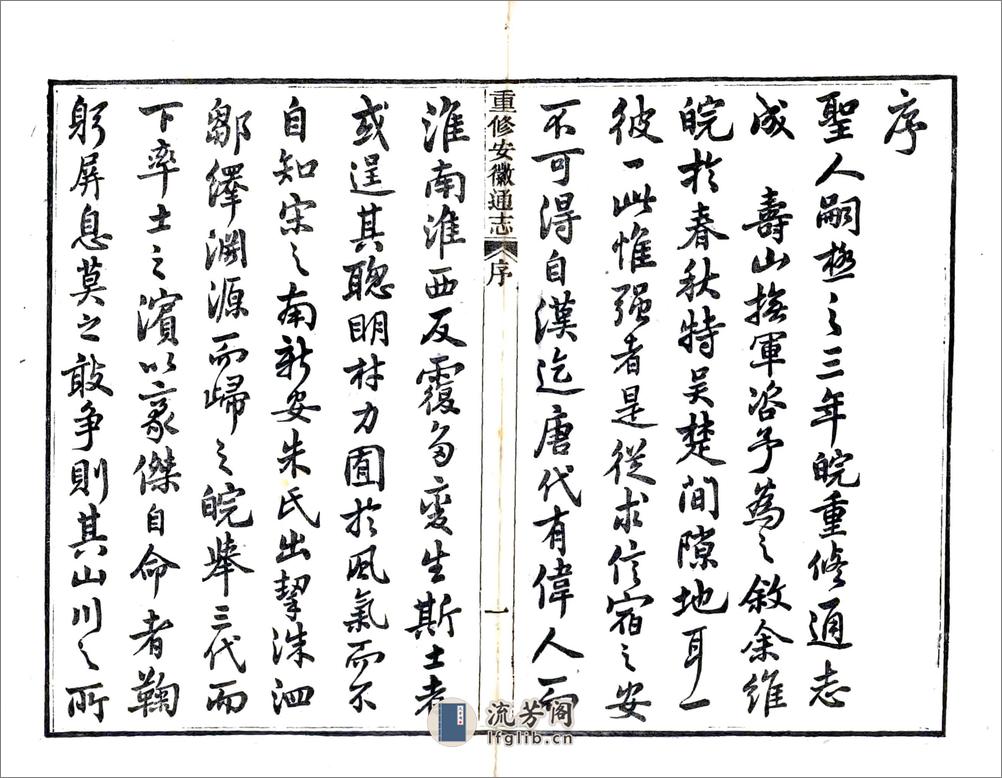 序
聖人嗣極之三年皖重修通志
成　壽山撫軍咨予為之敘余維
皖於春秋特吴楚間隙地耳一
彼一此惟强者是從求信宿之安
不可得自漢迄唐代有偉人而
重修安徽通志 序 一
淮南淮西反覆多變生斯土者
或逞其聰明材力囿於風氣而不
自知宋之南新安朱氏出挈洙泗
鄒繹淵源而歸之皖舉三代而
下率土之濱以豪傑自命者鞠
躬屏息莫之敢争則其山川之所
流芳阁
lfglib.cn